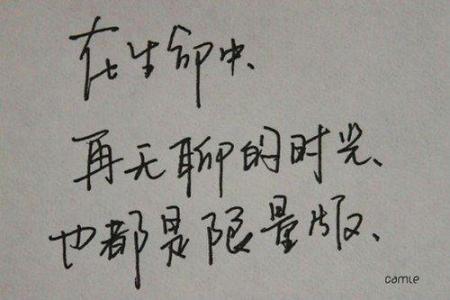 在生命中、
再无聊的时光、
也都是限量版、
camie